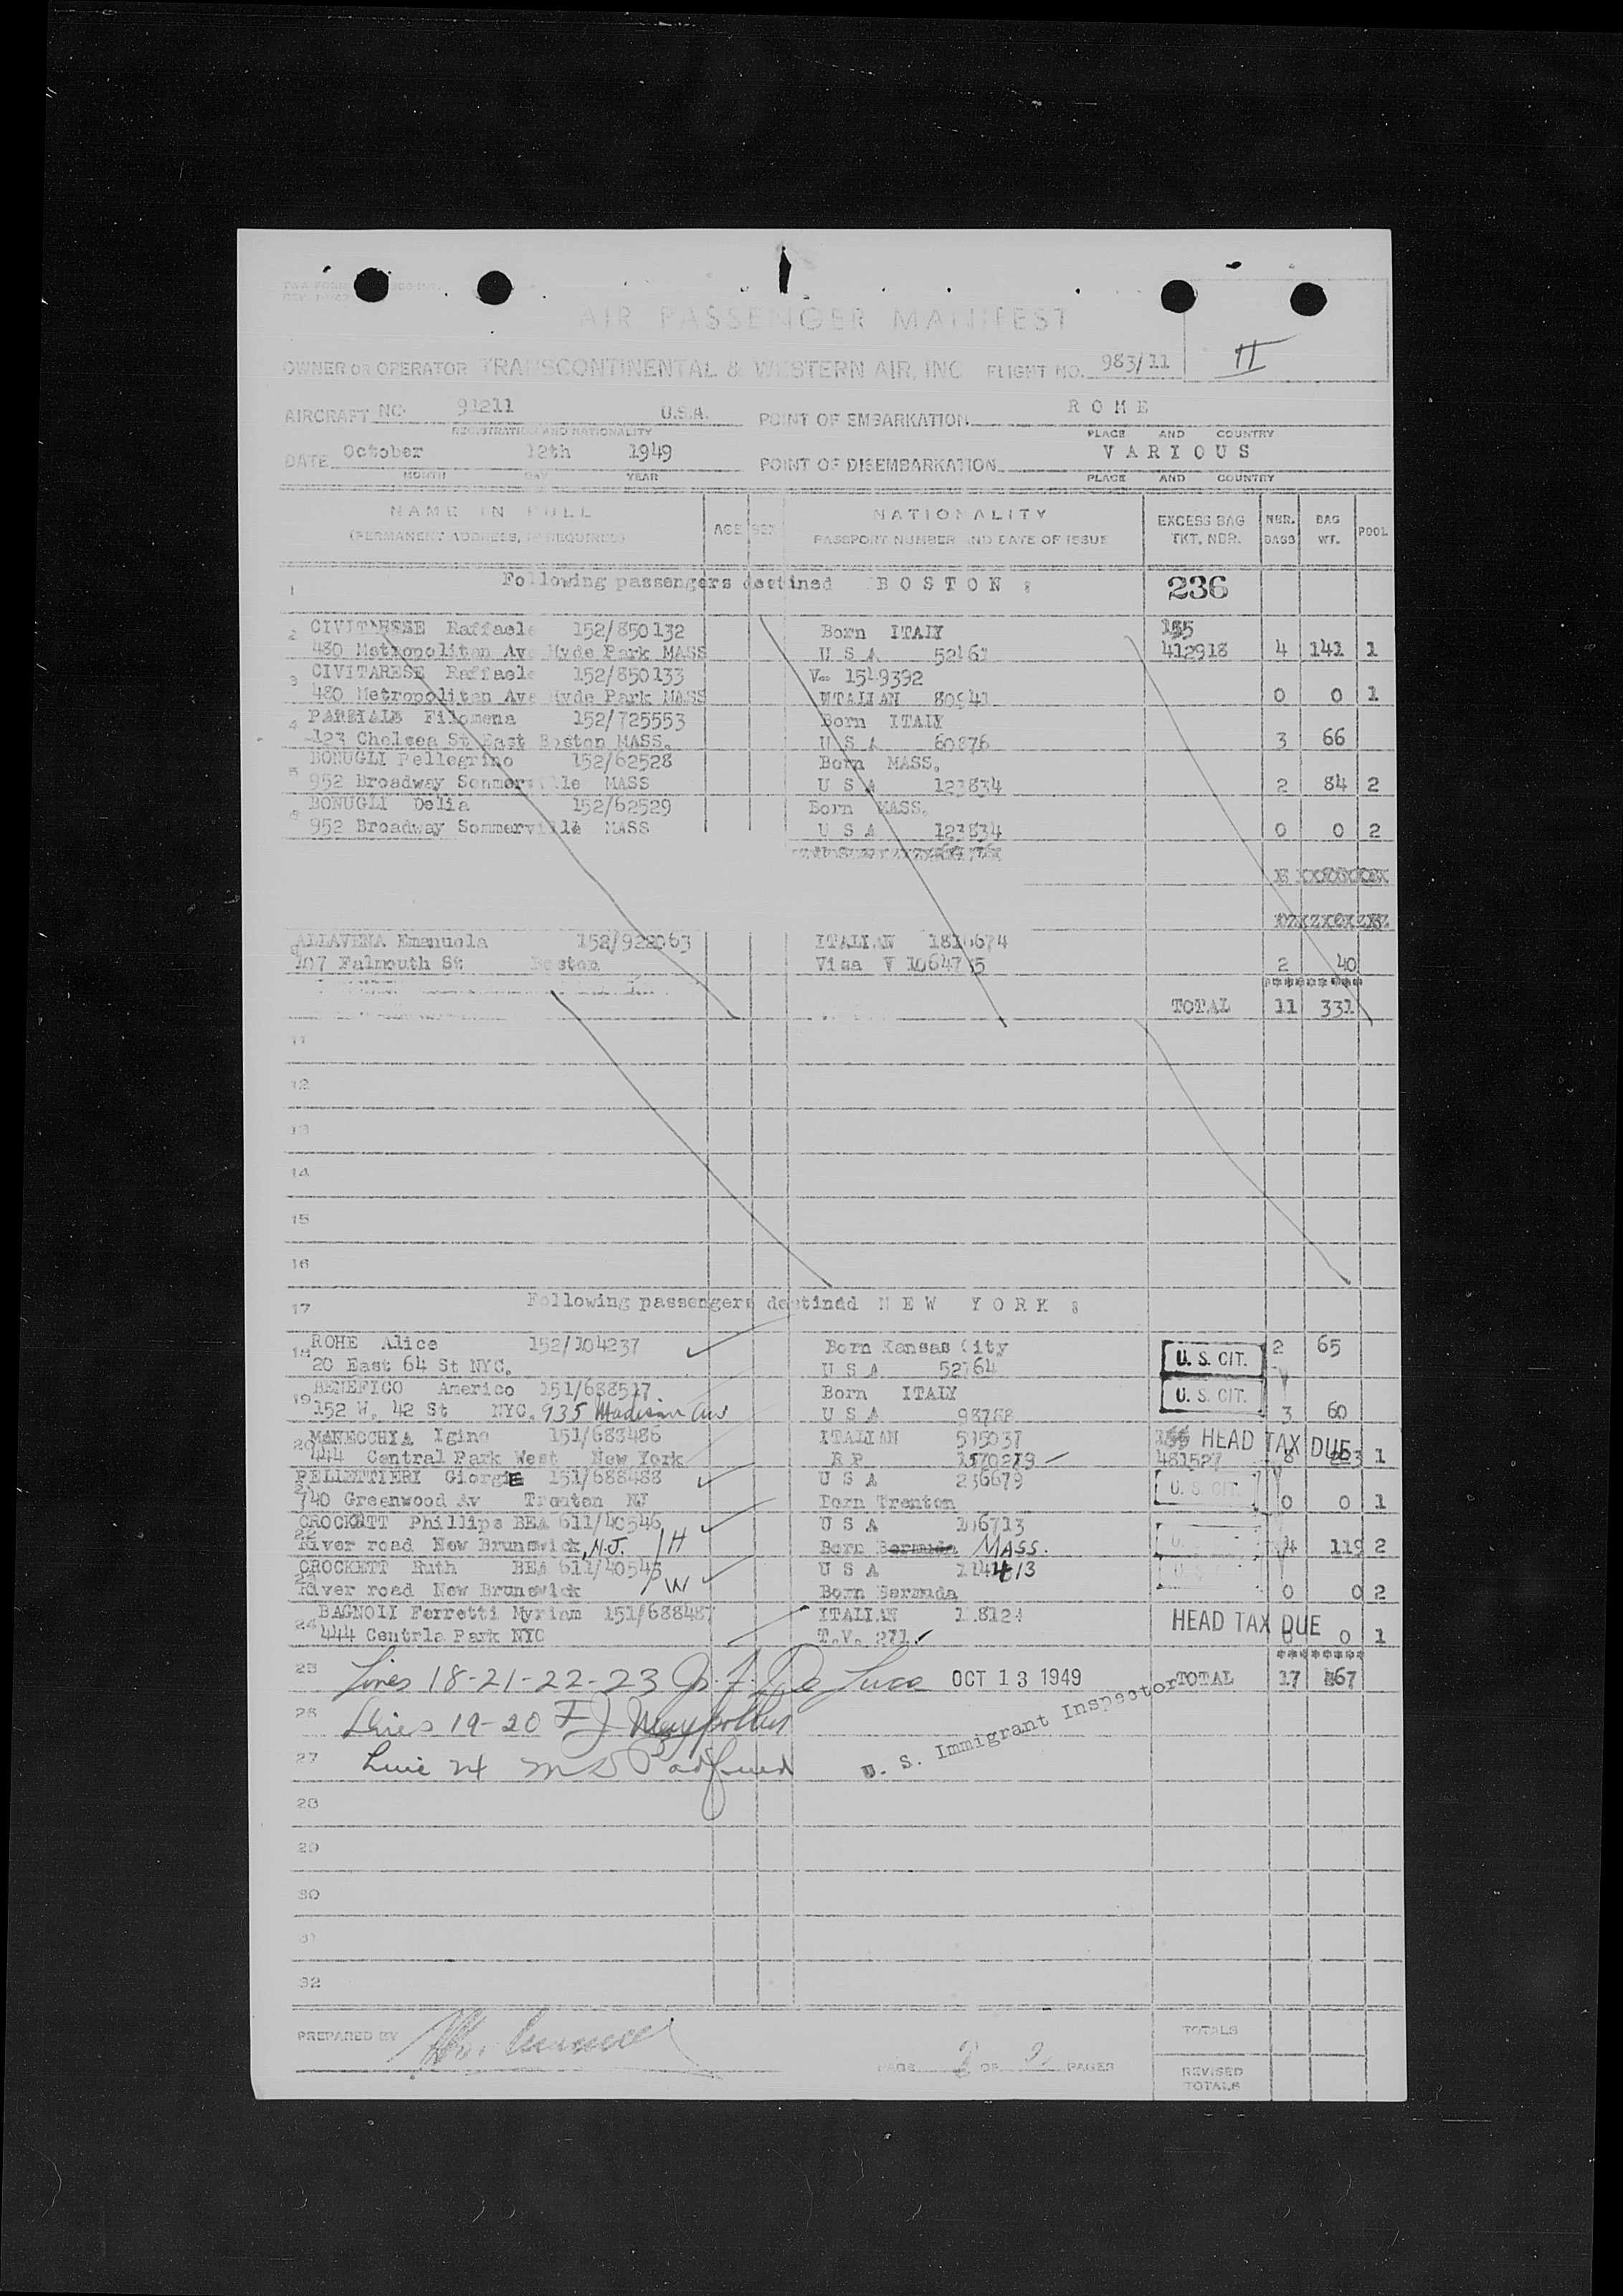 AIR PASSENGER MANIFEST
II
OWNER OR OPERATOR TRANSCONTINENTAL & WESTERN AIR, INC FLIGHT NO. 983/11
AIRCRAFT NC- 91211 U.S.A. POINT OF EMBARKATION ROME
REGISTRATION AND NATIONALITY PLACE AND COUNTRY
DATE October 12th 1949 POINT OF DISEMBARKATION VARIOUS
MONTH DAY YEAR PLACE AND COUNTRY
NAME IN FULL AGE SEX NATIONALITY EXCESS BAG NBR. BAG POOL
(PERMANENT ADDRESS, IF REQUIRED) PASSPORT NUMBER AND DATE OF ISSUE TKT. NBR. BAGS WT.
1 Following passengers destined BOSTON : 236
2 CIVITARESE Raffaele 152/850132 Born ITALY
480 Metropolitan Ave Hyde Park MASS U S A 412918 4 141 1
3 CIVITARESE Raffaele 152/850133 V- 1549392
480 Metropolitan Ave Hyde Park MASS 80941 0 0 1
4 Filomena 152/725553 Born ITALY
123 Chelsea St East Boston MASS. U S A 60876 3 66
5 BONUGLI Pellegrino 152/62528 Born MASS.
952 Broadway MASS U S A 123834 2 84 2
6 BONUGLI Delia 152/62529 Born MASS.
952 Broadway Sommerville MASS U S A 123834 0 0 2
ALLAVENA Emanuela ITALIAN
107 Falmouth St Boston Visa V 2 40
TOTAL 11 331
11
12
13
14
15
16
17 Following passengers destined NEW YORK :
18 ROHE Alice 152/104237 Born Kansas City U. S. CIT. 2 65
20 East 64 St NYC. U S A 52764
19 BENEFICO Americo 151/688517 Born ITALY U. S. CIT.
152 W. 42 St NYC. 935 Madison Ave U S A 98788 3 60
20 Igino 151/688486 ITALIAN 595037 HEAD TAX DUE
444 Central Park West New York R P 481527 8 1
PELLETTIERI GiorgiE 151/688488 U S A 236679 U. S. CIT.
740 Greenwood Av Trenton NJ Born Trenton 0 0 1
22 CROCKETT Phillips BEA 611/40546 U S A 106713
River road New Brunswick, N.J. H Born Bermuda MASS. 4 119 2
23 CROCKETT Ruth BEA 611/40545 U S A
River road New Brunswick W Born Bermuda 0 0 2
24 BAGNOLI Ferretti Myriam 151/688487 ITALIAN HEAD TAX DUE
444 Centrla Park NYC T.V. 271 0 0 1
25 Lines 18-21-22-23 De Luca OCT 13 1949 TOTAL 17
26 Lines 19-20 F J
U. S. Immigrant Inspector
27 Line 24
28
29
30
31
32
PREPARED BY TOTALS
PAGE 2 OF 2 PAGES
REVISED
TOTALS